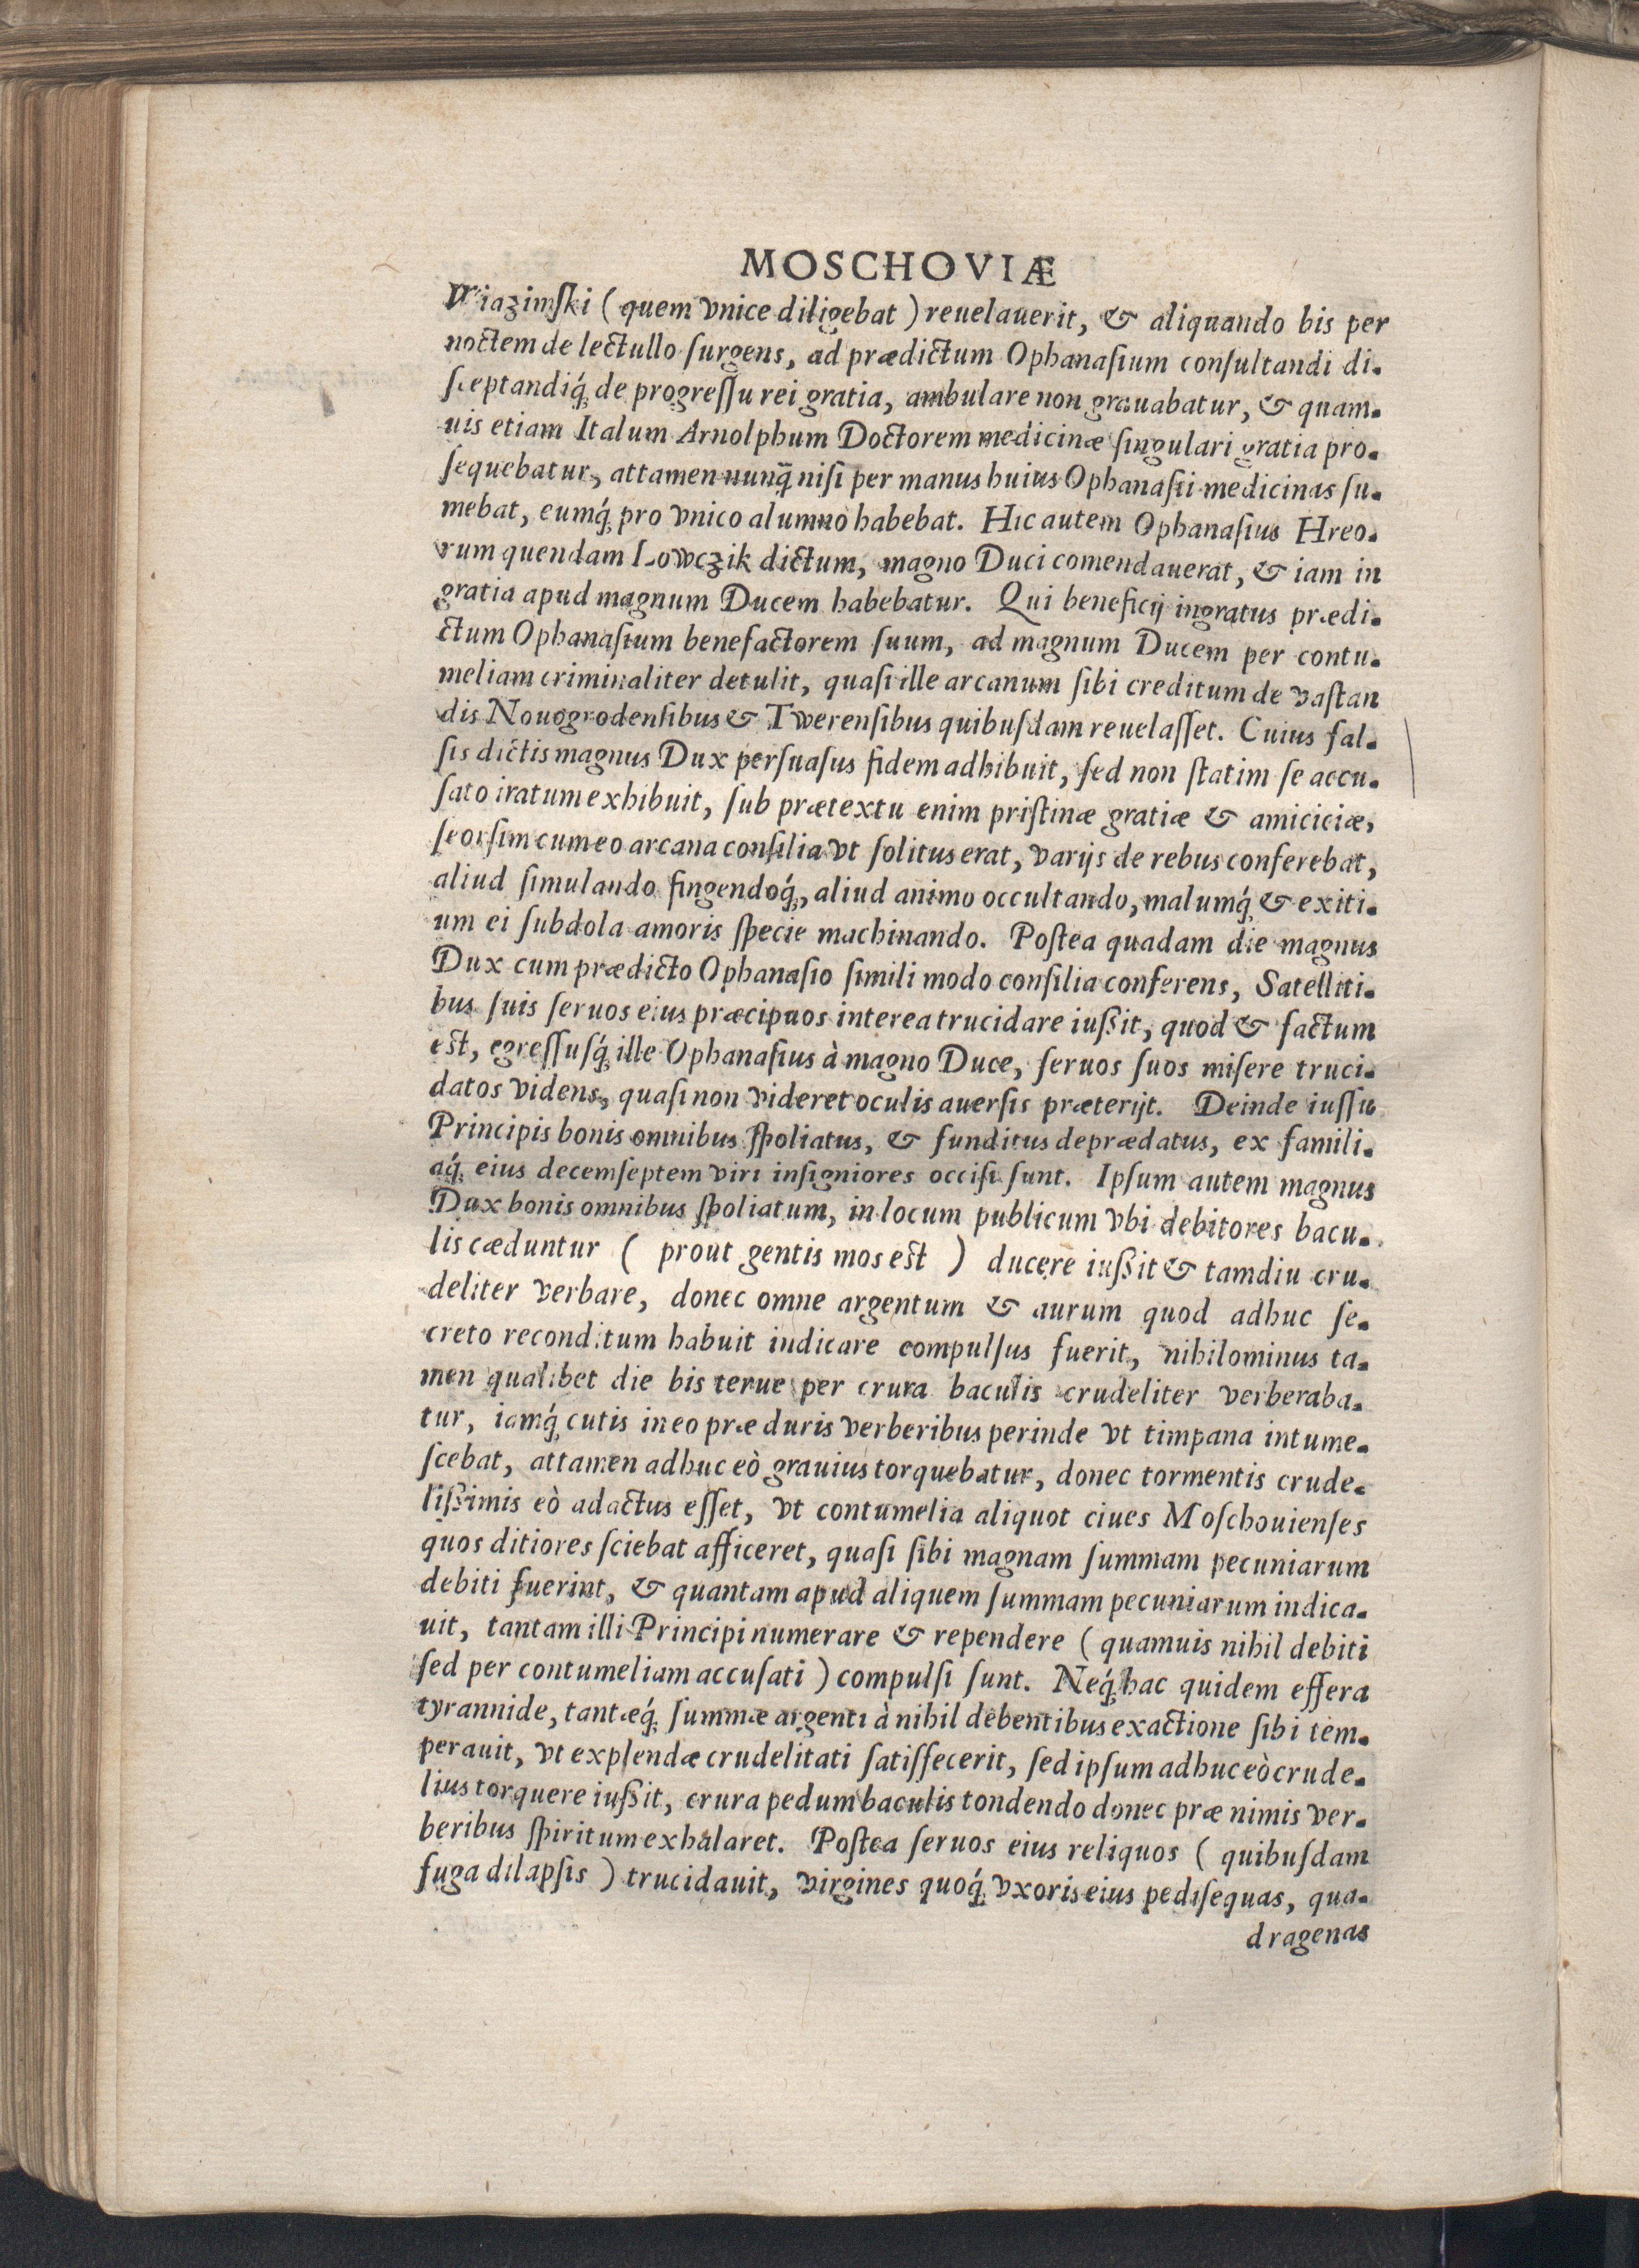 MOSCHOVIÆ
Wiazimſki ( quem vnice diligebat ) reuelauerit, & aliquando bis per
noctem de lectullo ſurgens, ad prædictum Ophanaſium conſultandi di-
ſceptandiq́; de progreſſu rei gratia, ambulare non grauabatur, & quam-
uis etiam Italum Arnolphum Doctorem medicinæ ſingulari gratia pro-
ſequebatur, attamen nunq̃ niſi per manus huius Ophanaſii medicinas ſu-
mebat, eumq́; pro vnico alumno habebat. Hic autem Ophanaſius Hreo-
rum quendam Lowczik dictum, magno Duci comendauerat, & iam in
gratia apud magnum Ducem habebatur. Qui beneficij ingratus prædi-
ctum Ophanaſium benefactorem ſuum, ad magnum Ducem per contu-
meliam criminaliter detulit, quaſi ille arcanum ſibi creditum de vaſtan
dis Nouogrodenſibus & Twerenſibus quibuſdam reuelaſſet. Cuius fal-
ſis dictis magnus Dux perſuaſus fidem adhibuit, ſed non ſtatim ſe accu-
ſato iratum exhibuit, ſub prætextu enim priſtinæ gratiæ & amiciciæ,
ſeorſim cum eo arcana conſilia vt ſolitus erat, varijs de rebus conferebat,
aliud ſimulando fingendoq́;, aliud animo occultando, malumq́; & exiti-
um ei ſubdola amoris ſpecie machinando. Poſtea quadam die magnus
Dux cum prædicto Ophanaſio ſimili modo conſilia conferens, Satelliti-
bus ſuis ſeruos eius præcipuos interea trucidare iußit, quod & factum
eſt, egreſſuſq́; ille Ophanaſius à magno Duce, ſeruos ſuos miſere truci-
datos videns, quaſi non videret oculis auerſis præterijt. Deinde iuſſu
Principis bonis omnibus ſpoliatus, & funditus deprædatus, ex famili-
aq́; eius decemſeptem viri inſigniores occiſi ſunt. Ipſum autem magnus
Dux bonis omnibus ſpoliatum, in locum publicum vbi debitores bacu-
lis cæduntur ( prout gentis mos eſt ) ducere iußit & tamdiu cru-
deliter verbare, donec omne argentum & aurum quod adhuc ſe-
creto reconditum habuit indicare compulſus fuerit, nihilominus ta-
men qualibet die bis terue per crura baculis crudeliter verberaba-
tur, iamq́; cutis in eo præ duris verberibus perinde vt timpana intume-
ſcebat, attamen adhuc eò grauius torquebatur, donec tormentis crude-
lißimis eò adactus eſſet, vt contumelia aliquot ciues Moſchouienſes
quos ditiores ſciebat afficeret, quaſi ſibi magnam ſummam pecuniarum
debiti fuerint, & quantam apud aliquem ſummam pecuniarum indica-
uit, tantam illi Principi numerare & rependere ( quamuis nihil debiti
ſed per contumeliam accuſati ) compulſi ſunt. Neq́; hac quidem effera
tyrannide, tantæq́; ſummæ argenti à nihil debentibus exactione ſibi tem-
perauit, vt explendæ crudelitati ſatiſfecerit, ſed ipſum adhuc eò crude-
lius torquere iußit, crura pedum baculis tondendo donec præ nimis ver-
beribus ſpiritum exhalaret. Poſtea ſeruos eius reliquos ( quibuſdam
fuga dilapſis ) trucidauit, virgines quoq́; vxoris eius pediſequas, qua-
dragenas